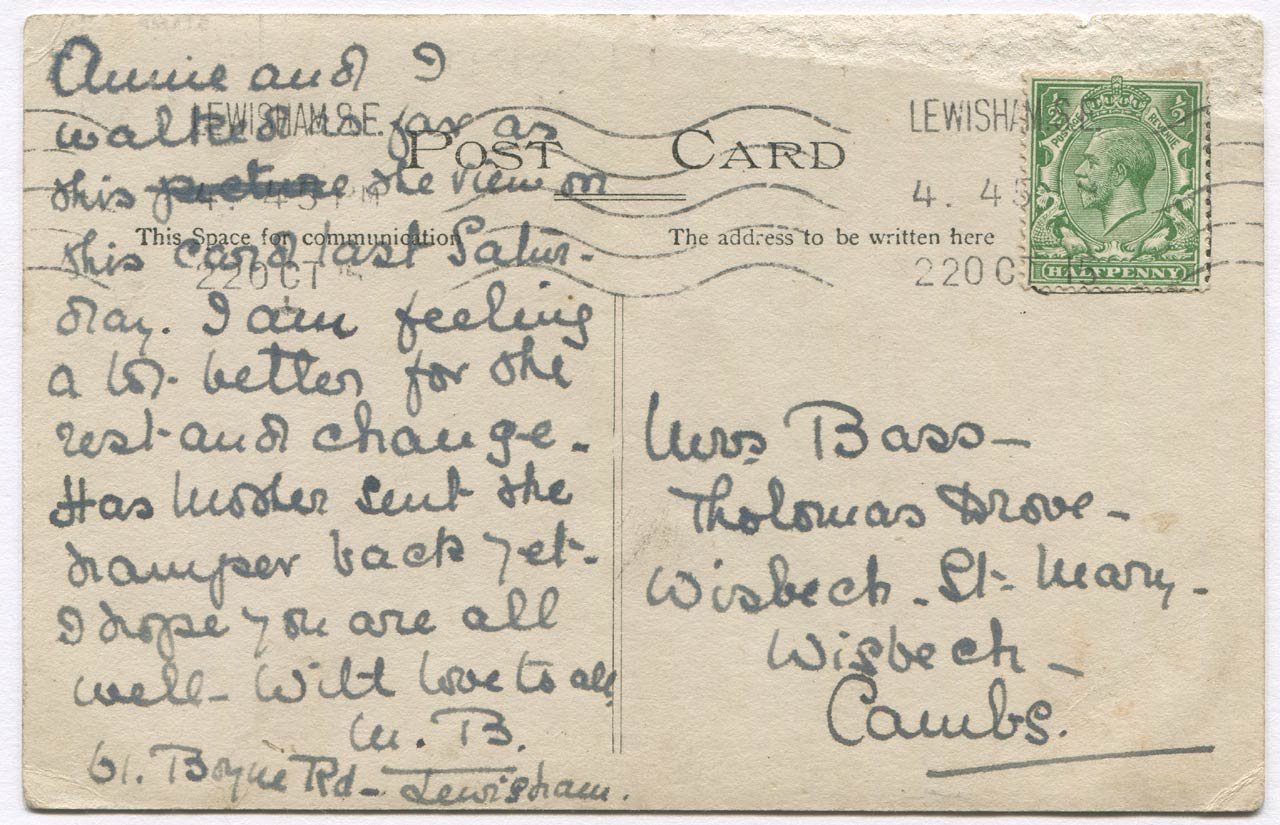 Annie and I
walked as far as
this picture the view on
this card last Satur-
day. I am feeling
a lot better for the
rest and change -
Has Mother sent the
hamper back yet -
I hope you are all
well - With love to all
M. B.
61. Boyne Rd - Lewisham.
POST CARD
This Space for communication
The address to be written here
LEWISHAM S.E.
4. 45 PM
22 OCT 15
LEWISHAM S.E.
4. 45
22 OCT 15
POSTAGE REVENUE
½ ½
HALFPENNY
Mrs Bass -
Tholomas Drove -
Wisbech - St. Mary -
Wisbech -
Cambs.